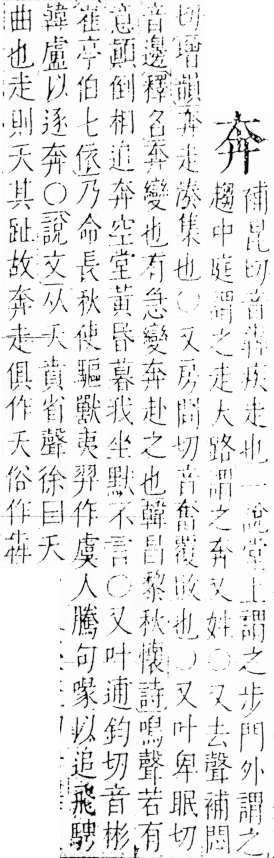 奔
補昆切音犇疾走也一說堂上謂之步門外謂之
趨中庭謂之走大路謂之奔又姓〇又去聲補悶
切增韻奔走湊集也〇又房問切音奮覆敗也〇又叶卑眠切
音邊釋名奔變也有急變奔赴之也韓昌黎秋懷詩鳴聲若有
意顚倒相追奔空堂黃昏暮我坐默不言〇又叶逋鈞切音彬
崔亭伯七依乃命長秋使驅獸夷羿作虞人騰句喙以追飛騁
韓盧以逐奔〇說文从夭賁省聲徐曰夭
曲也走則夭其趾故奔走俱作夭俗作犇